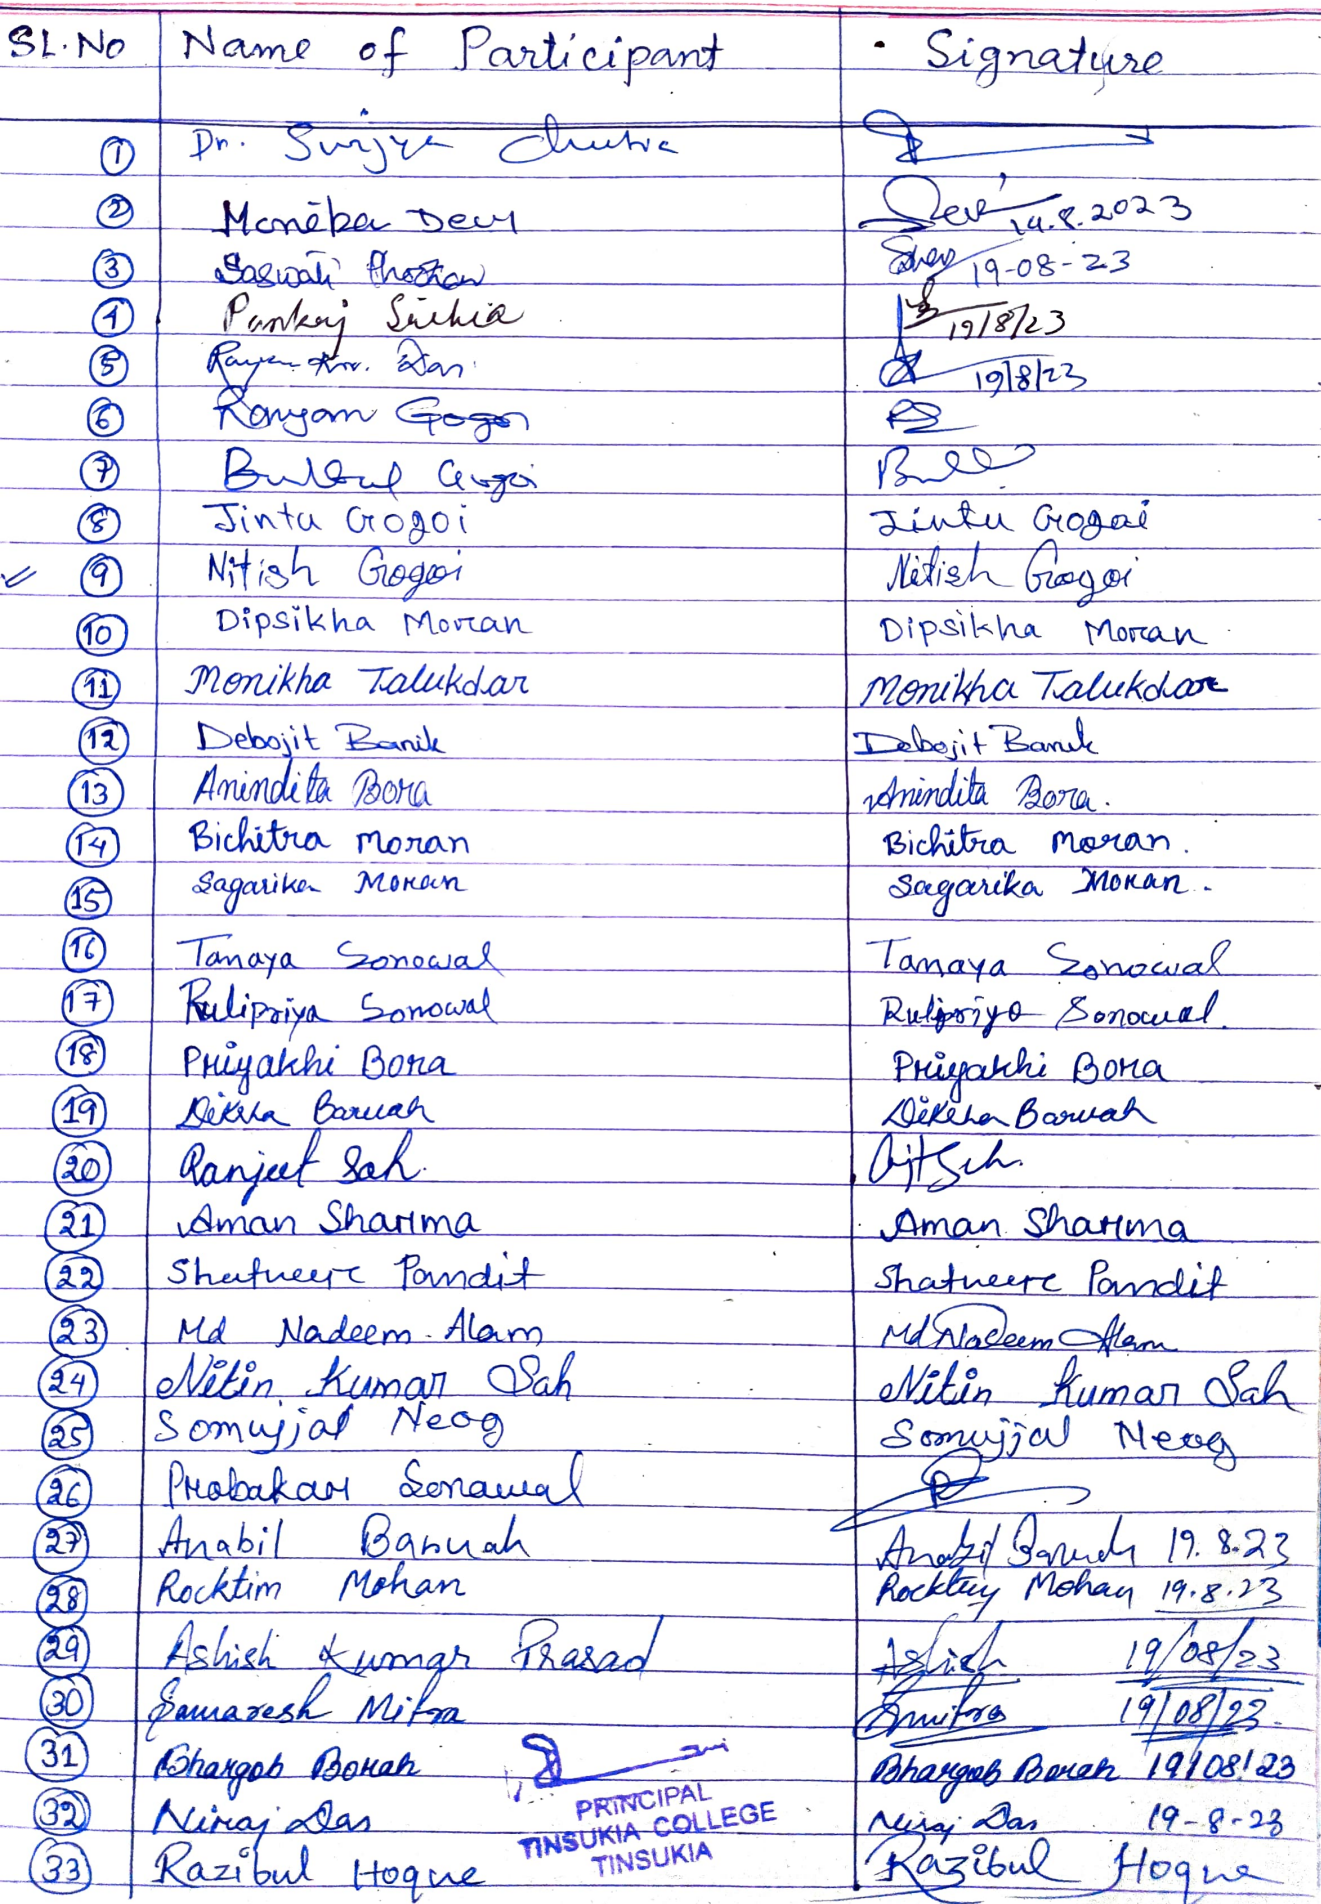 SL.No Name of Participant Signature
1 Dr. Surjya Chutia
2 Moneka Devi Devi 19.8.2023
3 Saswati 19-08-23
4 Pankaj Saikia 19/8/23
5 Kr. Das 19/8/23
6 Ranyam Gogoi
7 Bulbul Gogoi Bul
8 Jintu Gogoi Jintu Gogoi
9 Nitish Gogoi Nitish Gogoi
10 Dipsikha Moran Dipsikha Moran
11 Monikha Talukdar Monikha Talukdar
12 Debojit Banik Debojit Banik
13 Anindita Bora Anindita Bora.
14 Bichitra Moran Bichitra Moran.
15 Sagarika Moran Sagarika Moran.
16 Tanaya Sonowal Tanaya Sonowal
17 Rulipriya Sonowal Rulipriya Sonowal.
18 Priyakhi Bora Priyakhi Bora
19 Diksha Baruah Diksha Baruah
20 Ranjeet Sah.
21 Aman Sharma Aman Sharma
22 Shatveer Pandit Shatveer Pandit
23 Md Nadeem Alam Md Nadeem Alam
24 Nitin Kumar Sah Nitin Kumar Sah
25 Somujjal Neog Somujjal Neog
26 Probakar Sonawal
27 Anabil Baruah Anabil Baruah 19.8.23
28 Rocktim Mohan Rocktim Mohan 19.8.23
29 Ashish Kumar Prasad Ashish 19/08/23
30 Samaresh Mitra Smitra 19/08/23
31 Bhargob Borah Bhargob Borah 19/08/23
PRINCIPAL
32 Niraj Das Niraj Das 19-8-23
TINSUKIA COLLEGE
TINSUKIA
33 Razibul Hoque Razibul Hoque